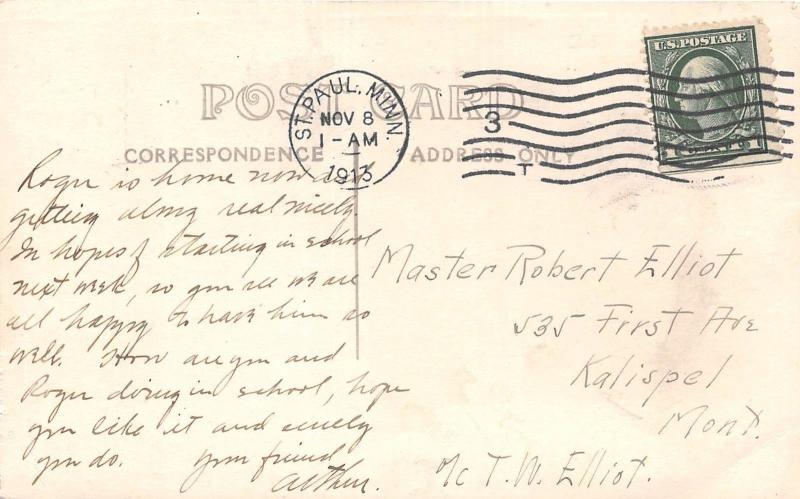 POST CARD
ST. PAUL, MINN.
NOV 8
1-AM
1913
3
T
U.S. POSTAGE
CORRESPONDENCE
ADDRESS ONLY
Roger is home now and
getting along real nicely.
In hopes of starting in school
next week, so you see we are
all happy to have him so
well. How are you and
Roger doing in school, hope
you like it and surely
you do. Your friend
Arthur.
Master Robert Elliot
535 First Ave
Kalispel
Mont.
c/o T.W. Elliot.